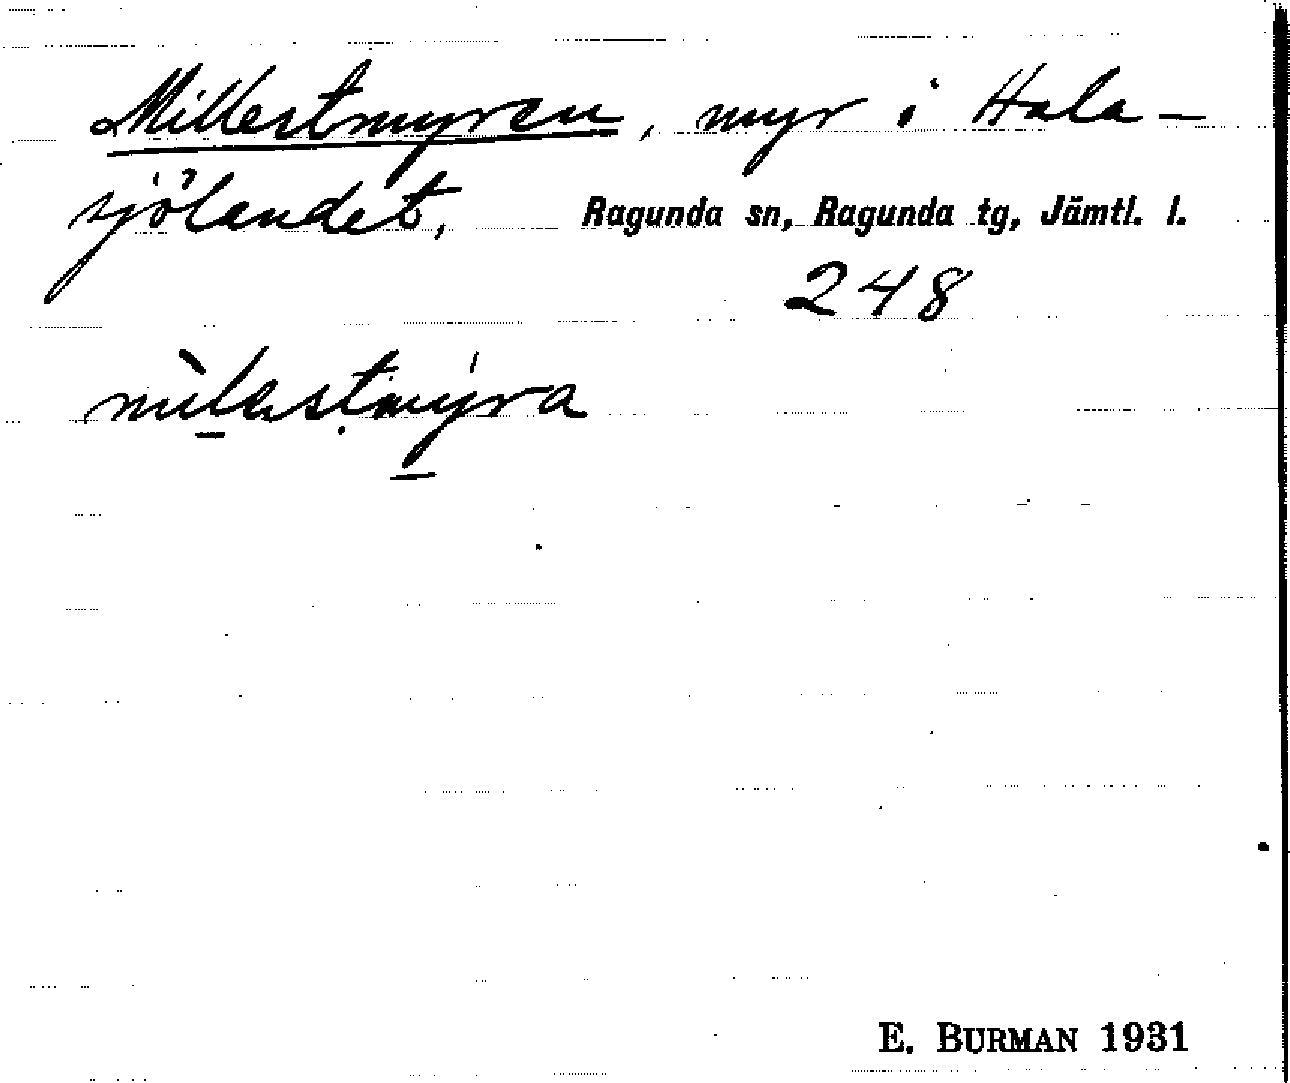 Millestmyren, myr i Hala-
sjölandet, Ragunda sn, Ragunda tg, Jämtl. l.
248
mìlestmýra
E. BURMAN 1931